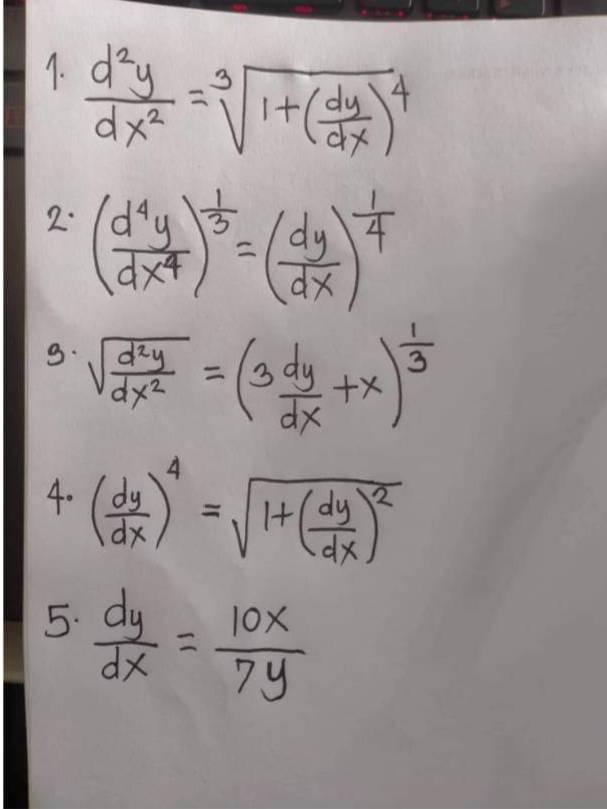 1. d²y/dx² = ∛(1+(dy/dx)⁴)
2. (d⁴y/dx⁴)^(1/3) = (dy/dx)^(1/4)
3. √(d²y/dx²) = (3 dy/dx + x)^(1/3)
4. (dy/dx)⁴ = √(1+(dy/dx)²)
5. dy/dx = 10x/7y